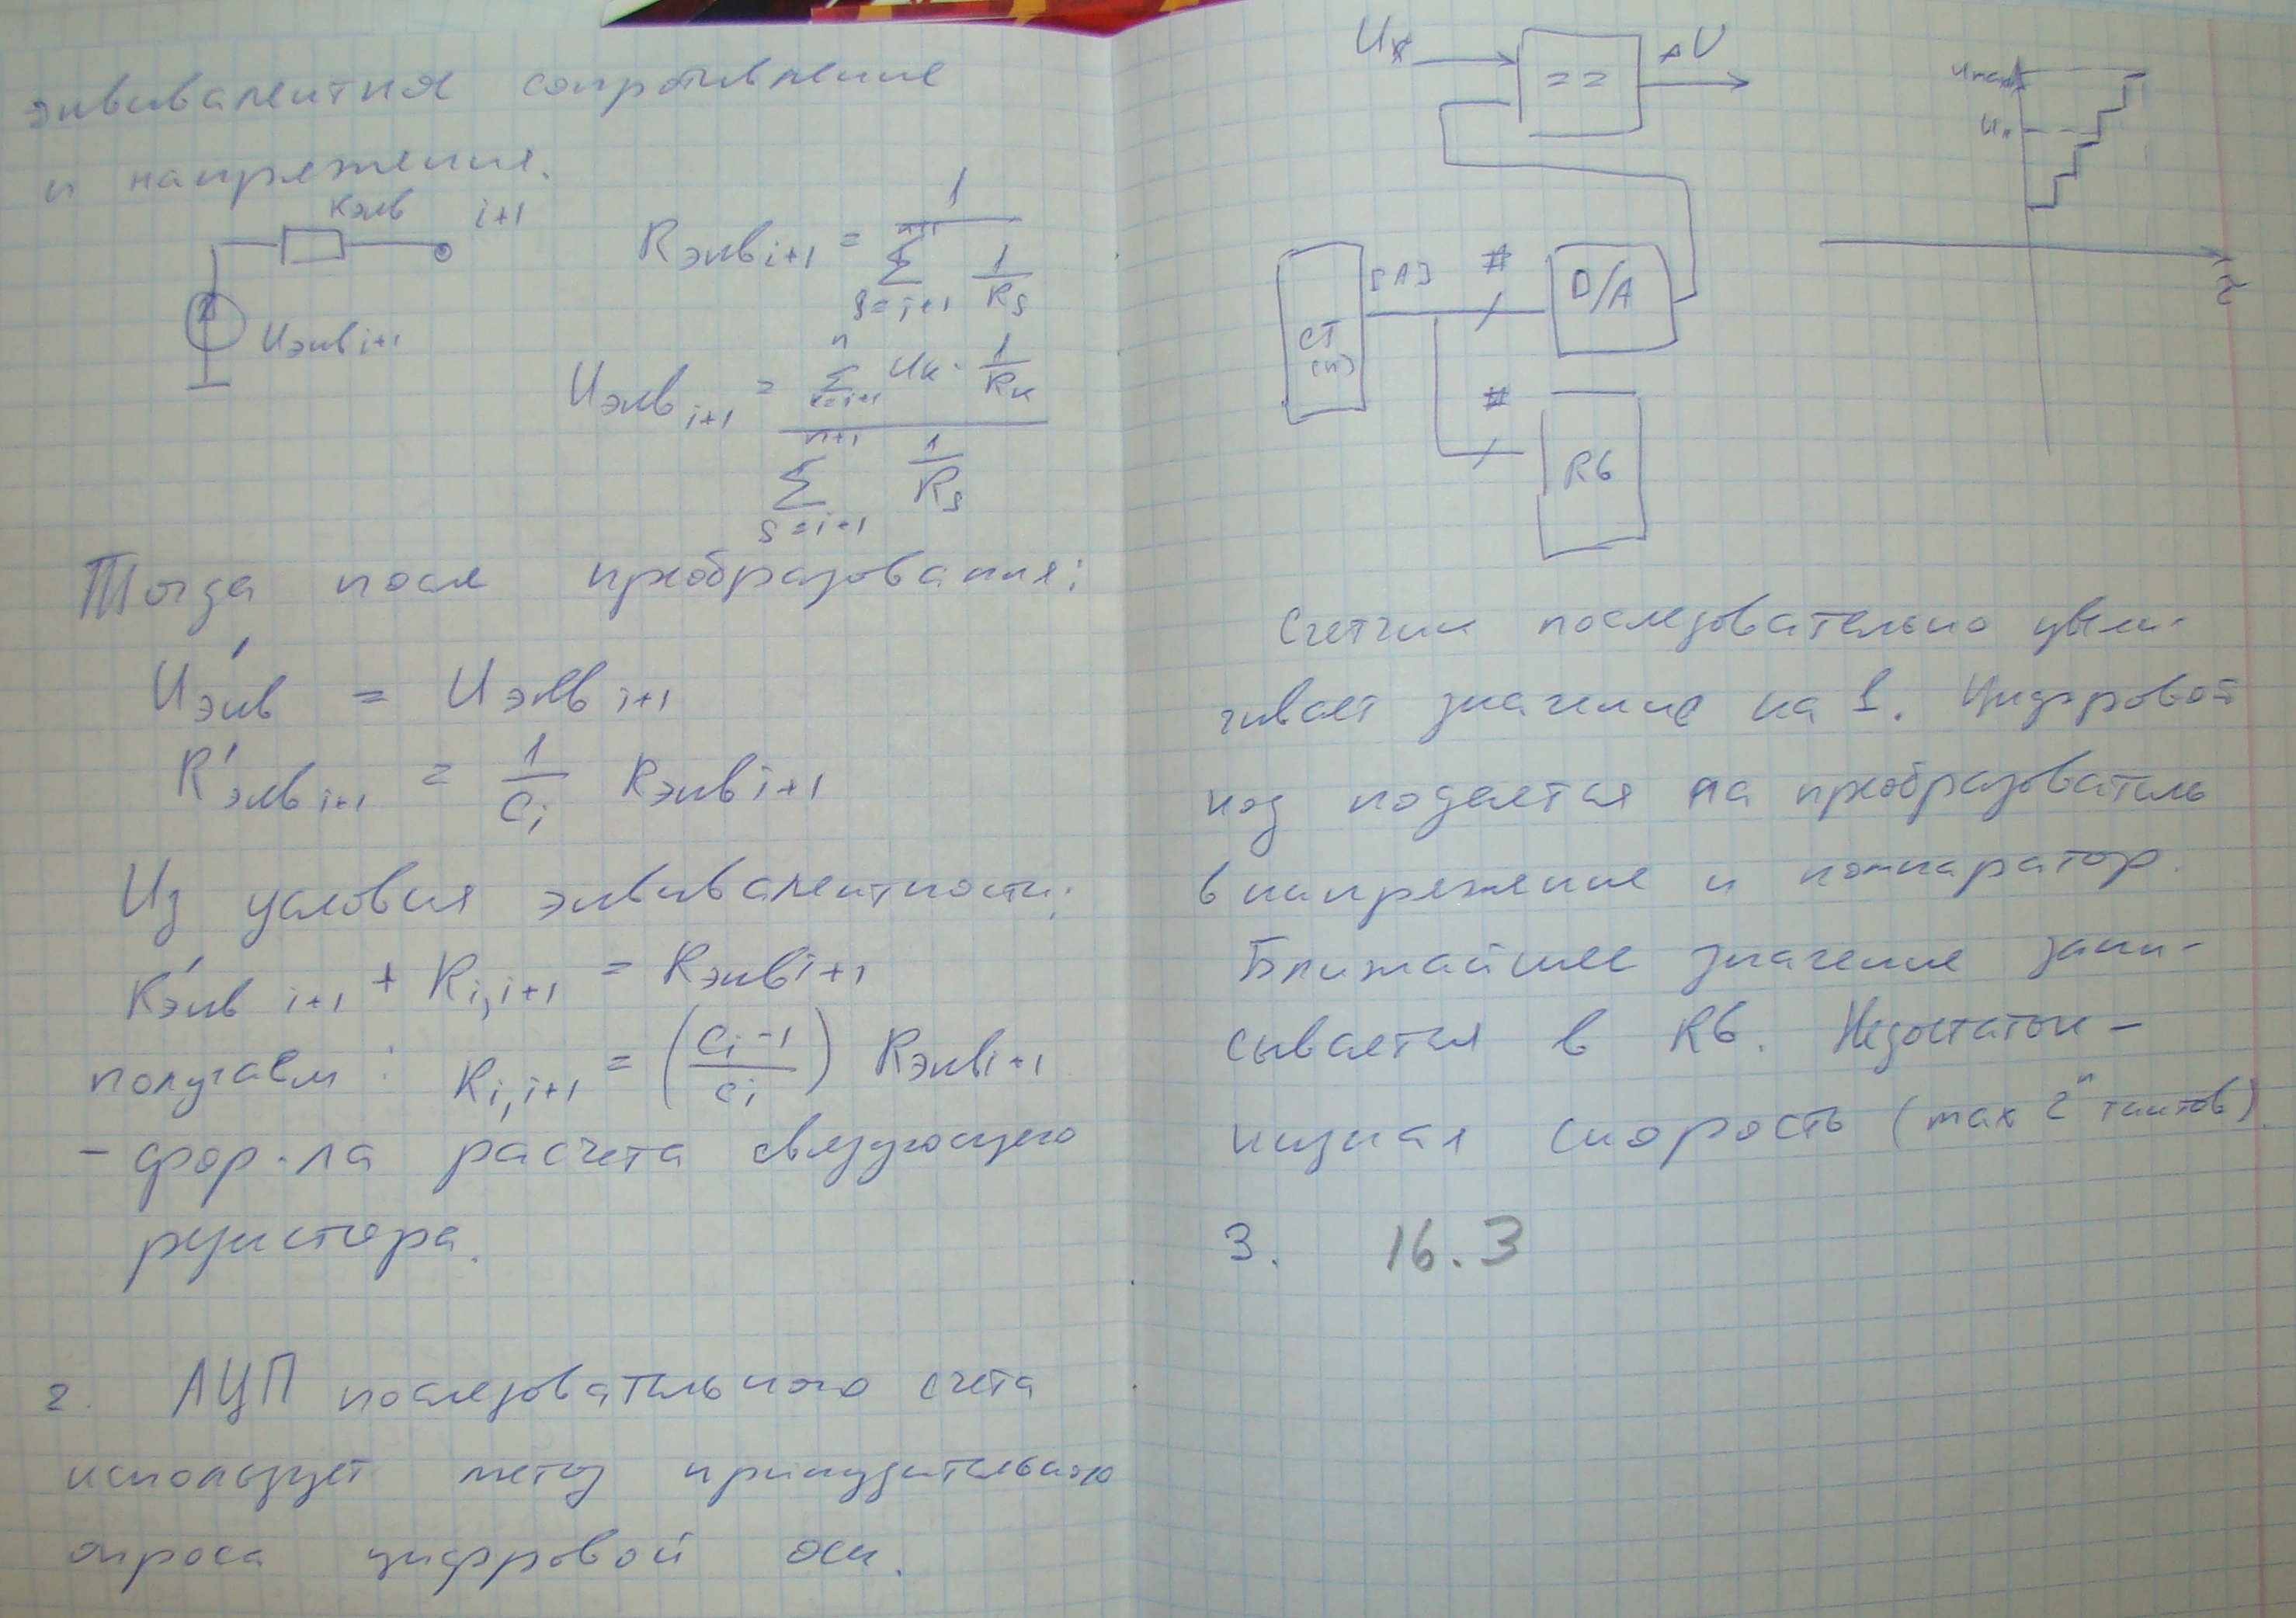 эквивалентная сопротивление
и напряжения.
Rэкв i+1
Uэкв i+1
Rэкв i+1 = 1 / ∑ (s=i+1, n+1) 1/Rs
Uэкв i+1 = ∑ (k=i+1, n) Uk · 1/Rk / ∑ (s=i+1, n+1) 1/Rs
Тогда после преобразования:
U'экв = Uэкв i+1
R'экв i+1 = 1/ci Rэкв i+1
Из условия эквивалентности:
R'экв i+1 + Ri,i+1 = Rэкв i+1
получаем: Ri,i+1 = (ci-1 / ci) Rэкв i+1
- фор-ла расчета связующего
резистора.
2. АЦП последовательного счета
использует метод принудительного
опроса цифровой оси.
Ux == ΔU
Umax
Ux
τ
CT (n) [A] # D/A
# RG
Счетчик последовательно увели-
чивает значение на 1. Цифровой
код подается на преобразователь
в напряжение и компаратор.
Ближайшее значение запи-
сывается в RG. Недостаток -
низкая скорость (max 2ⁿ тактов).
3. 16.3